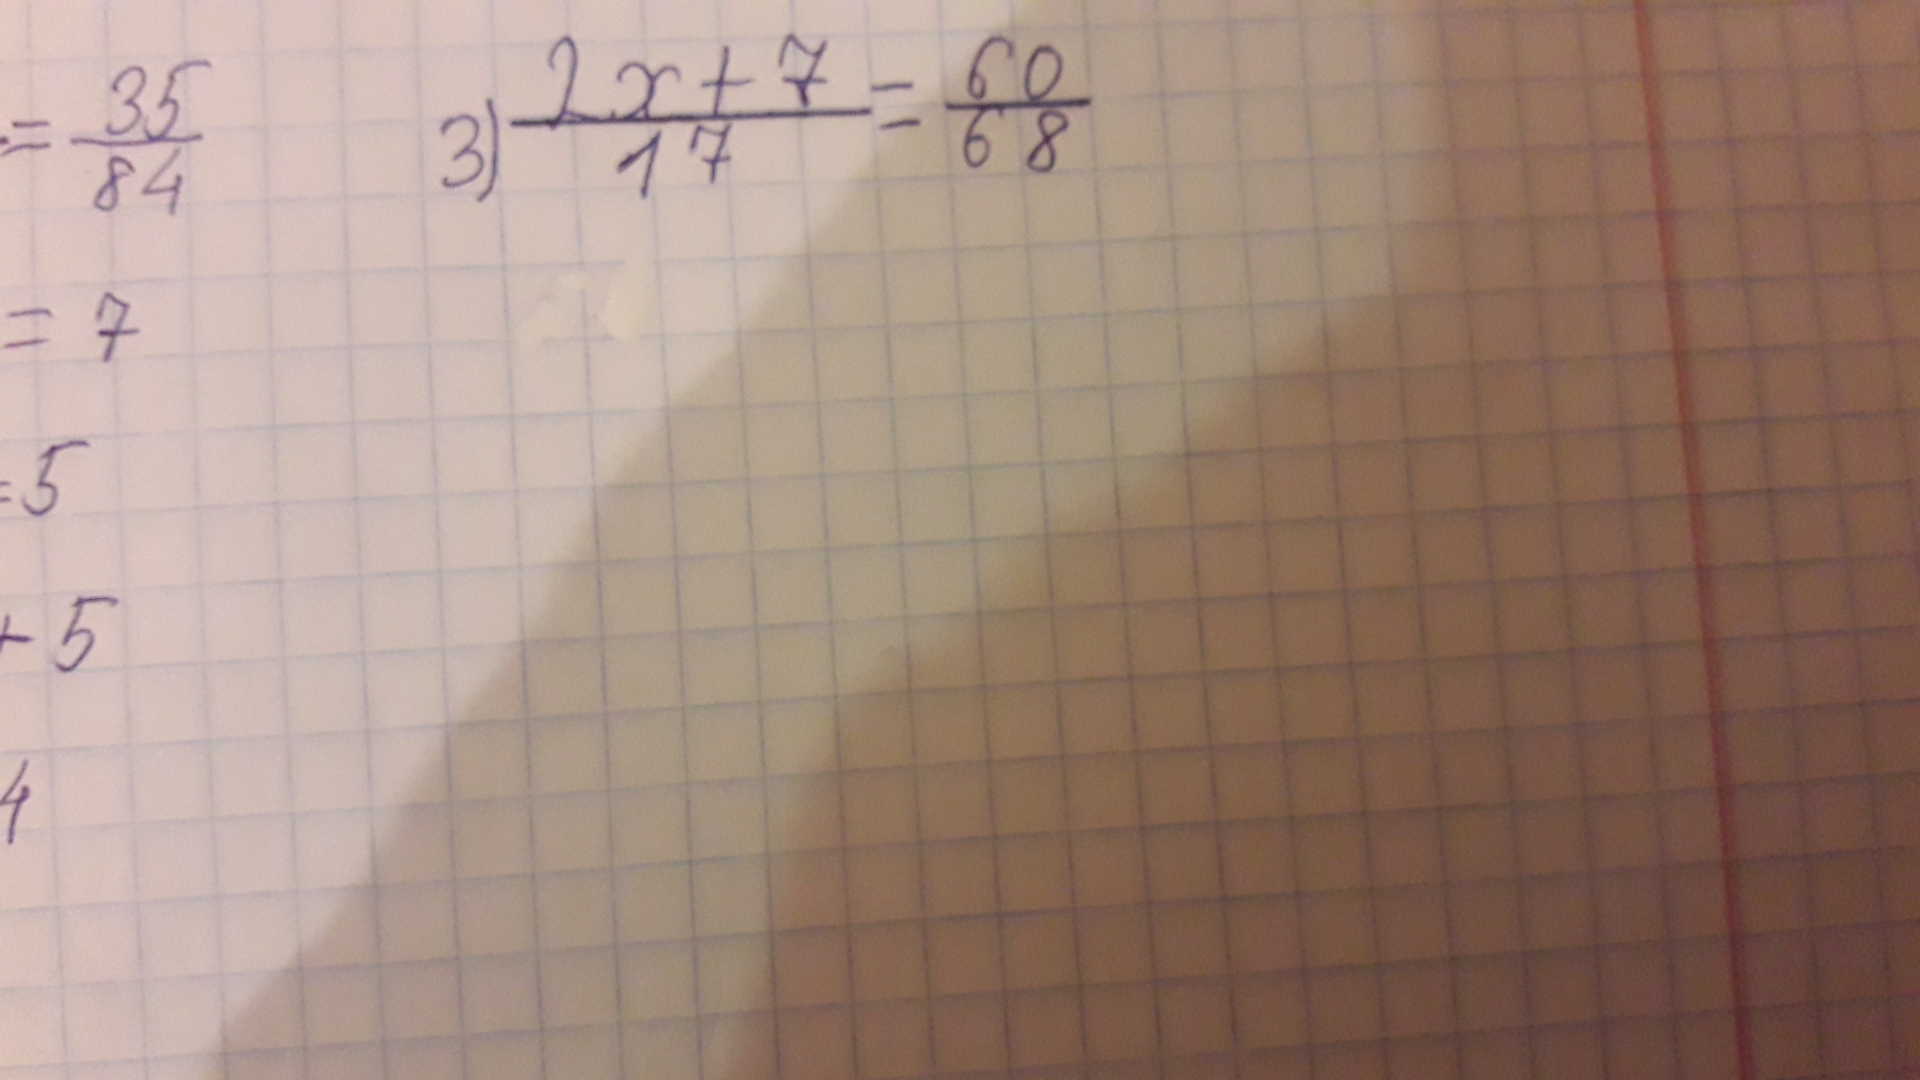 = 35/84
3) (2x+7)/17 = 60/68
= 7
=5
+ 5
4